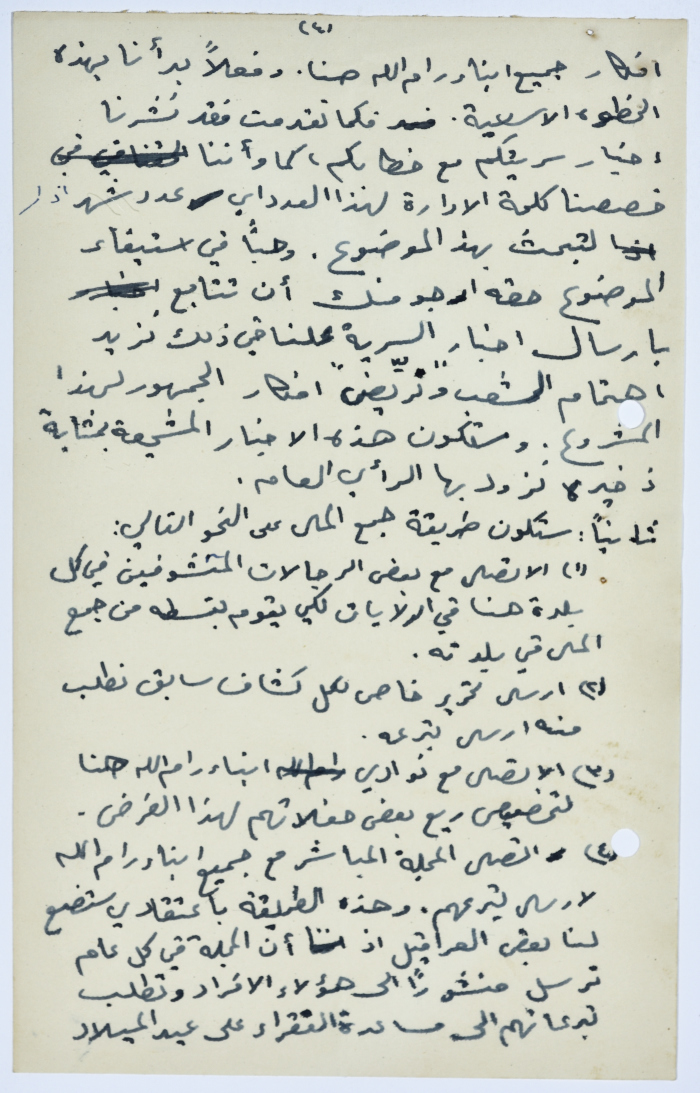 (٤)
افكار جميع ابناء رام الله هنا. وفعلاً بدأنا بهذه
الخطوه الاساسية. فكما تقدمت فقد نشرنا
اخبار سريتكم مع خطابكم، كما وأننا
خصصنا كلمة الادارة لهذا العدد اي عدد شهر اذار
لتبحث بهذا الموضوع. وحباً في استيفاء
الموضوع حقه ارجو منك أن تتابع
بارسال اخبار السرية علنا في ذلك نزيد
اهتمام الشعب و"نريّض" افكار الجمهور لهذا
المشروع. وستكون هذه الاخبار المشجعة بمثابة
ذخيره نزود بها الرأي العام.
ثانياً: ستكون طريقة جمع المال على النحو التالي:
(١) الاتصال مع بعض الرجالات المتشوفين في كل
بلدة هنا في الولايات لكي يقوم بقسطه من جمع
المال في بلدته.
(٢) ارسال تحرير خاص لكل كشاف سابق نطلب
منه ارسال تبرعه.
(٣) الاتصال مع نوادي ابناء رام الله هنا
لتخصيص ريع بعض حفلاتهم لهذا الغرض.
(٤) اتصال المجلة المباشر مع جميع ابناء رام الله
لارسال تبرعهم. وهذه الطريقة باعتقادي ستضع
لنا بعض العراقيل اذ أن المجلة في كل عام
ترسل منشوراً الى هؤلاء الافراد وتطلب
تبرعاتهم الى مساعدة الفقراء على عيد الميلاد